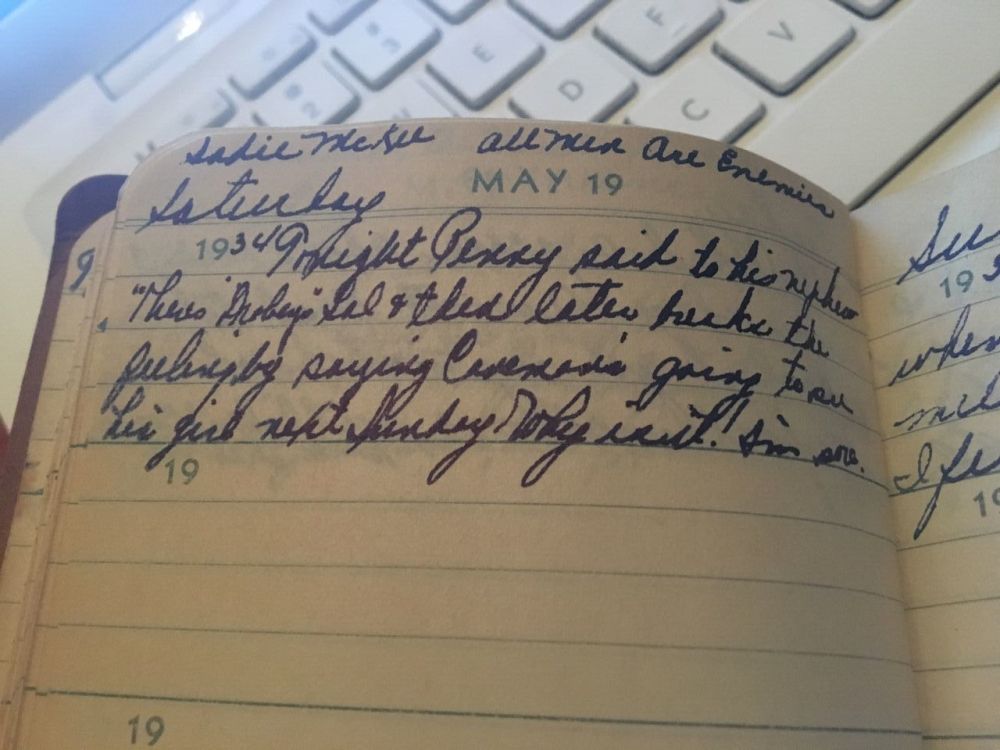 Sadie McKee all men Are Enemies
MAY 19
Saturday
1934 Tonight Penny said to his nephew
"Theres Gal & then later breaks the
feeling by saying Caveman's going to see
his girl next Sunday Why is it! I'm sore.
19
19
Su
19 3
when
I fe
19
9
E
D
F
C
V
3
2